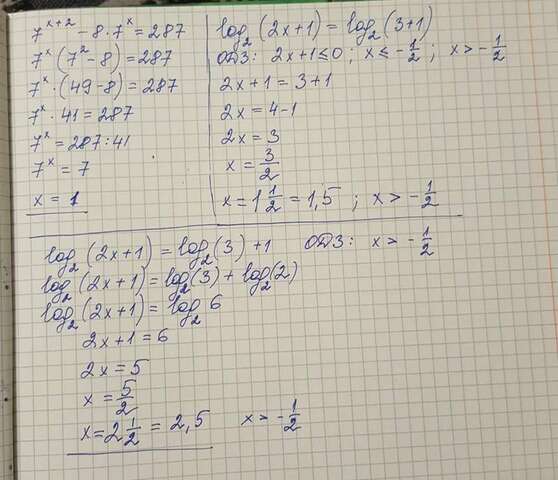 7^{x+2} - 8·7^x = 287
7^x (7^2 - 8) = 287
7^x · (49 - 8) = 287
7^x · 41 = 287
7^x = 287 : 41
7^x = 7
x = 1
log_2 (2x+1) = log_2 (3+1)
ОДЗ: 2x+1 ≤ 0 ; x ≤ -1/2 ; x > -1/2
2x+1 = 3+1
2x = 4-1
2x = 3
x = 3/2
x = 1 1/2 = 1,5 ; x > -1/2
log_2 (2x+1) = log_2 (3) + 1 ОДЗ: x > -1/2
log_2 (2x+1) = log_2 (3) + log_2 (2)
log_2 (2x+1) = log_2 6
2x+1 = 6
2x = 5
x = 5/2
x = 2 1/2 = 2,5 x > -1/2